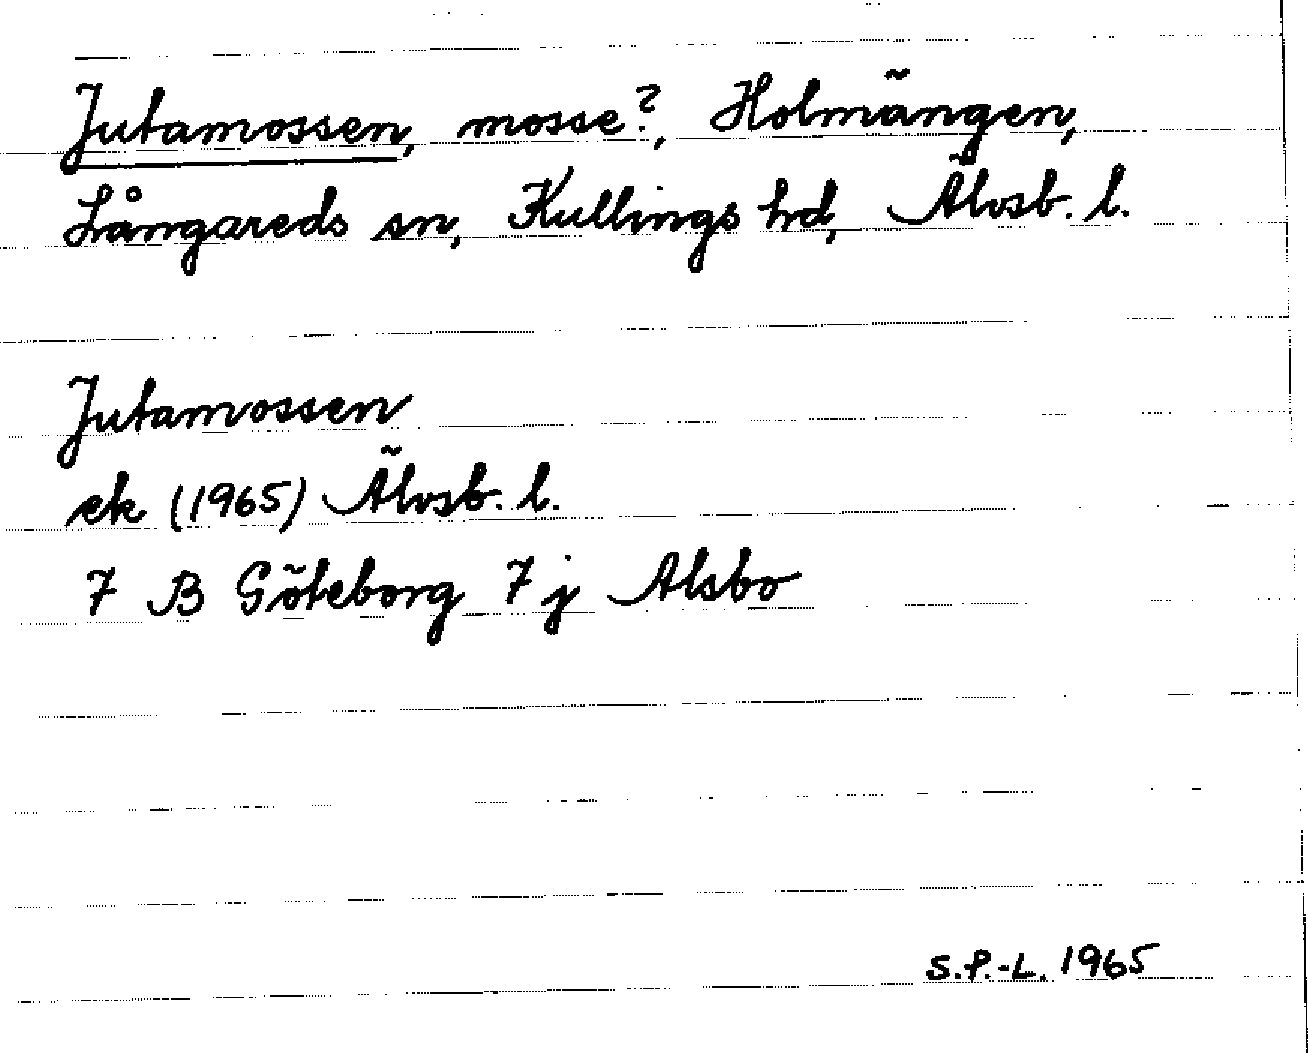 Jutamossen, mosse?, Holmängen,
Långareds sn, Kullings hd, Älvsb. l.
Jutamossen
ek (1965) Älvsb. l.
7 B Göteborg 7 j Alsbo
S.P.-L. 1965